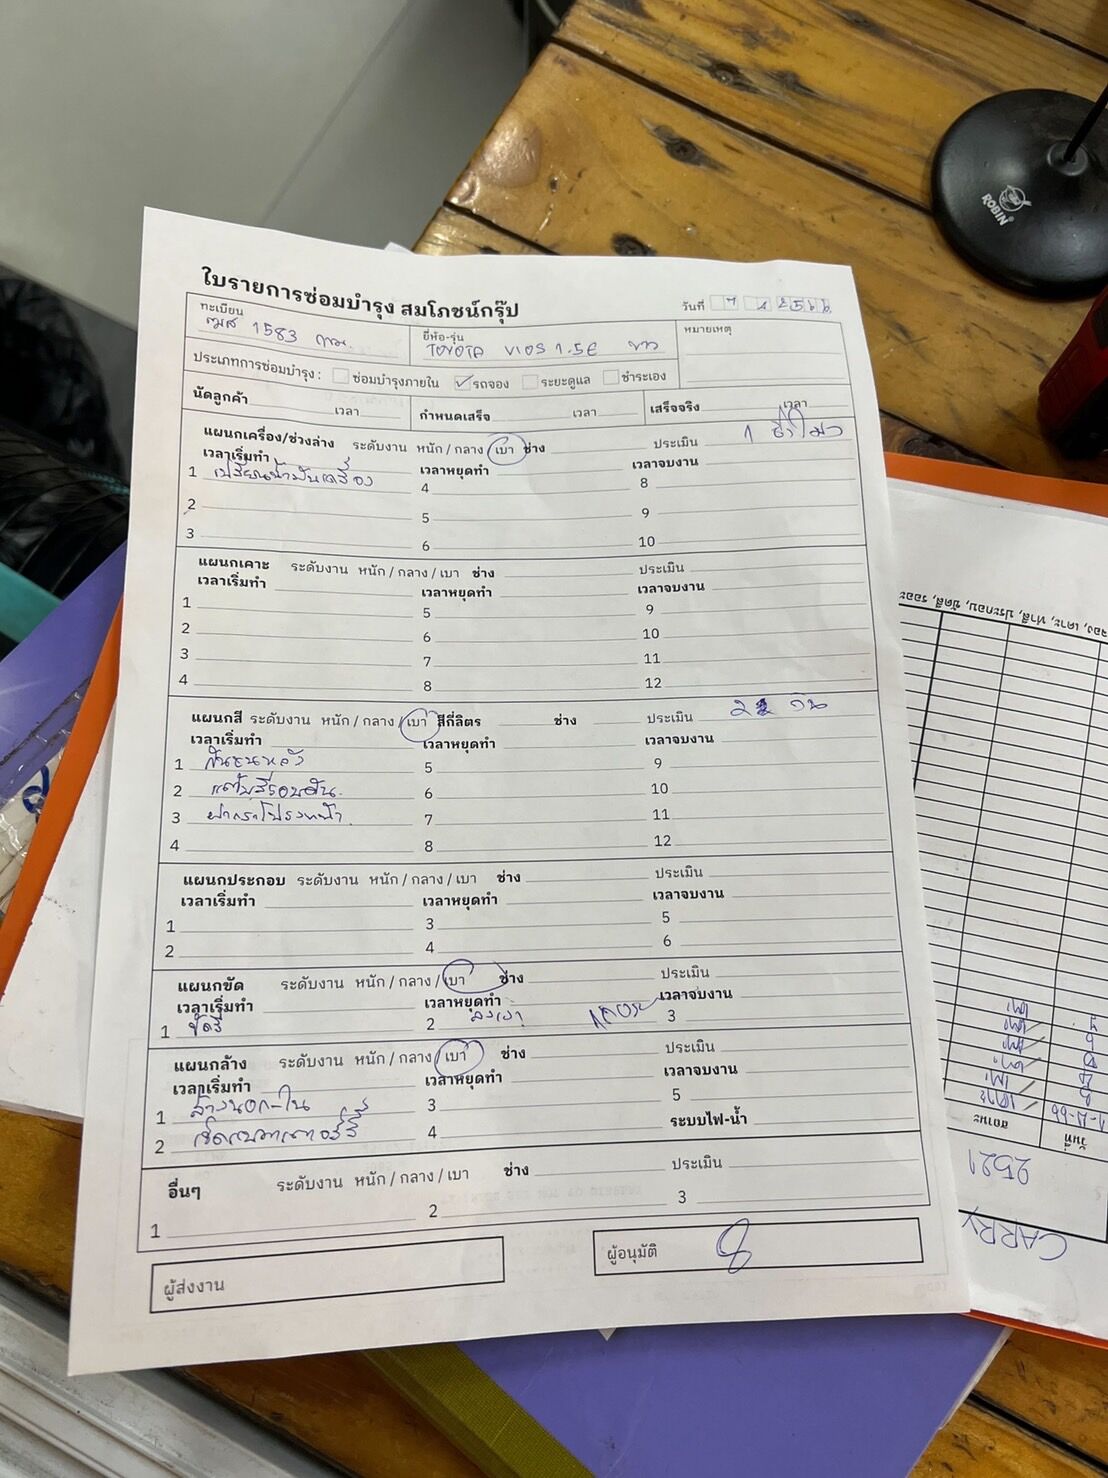 ใบรายการซ่อมบำรุง สมโภชน์กรุ๊ป
วันที่ 7 4 2566
ทะเบียน 1583 กทม. ยี่ห้อ-รุ่น TOYOTA VIOS 1.5E ขาว หมายเหตุ
ประเภทการซ่อมบำรุง : ซ่อมบำรุงภายใน ✓ รถจอง ระยะดูแล ชำระเอง
นัดลูกค้า เวลา กำหนดเสร็จ เวลา เสร็จจริง เวลา
แผนกเครื่อง/ช่วงล่าง ระดับงาน หนัก / กลาง / เบา ช่าง ประเมิน 1 ชั่วโมง
เวลาเริ่มทำ เวลาหยุดทำ เวลาจบงาน
1 เปลี่ยนน้ำมันเครื่อง 4 8
2 5 9
3 6 10
แผนกเคาะ ระดับงาน หนัก / กลาง / เบา ช่าง ประเมิน
เวลาเริ่มทำ เวลาหยุดทำ เวลาจบงาน
1 5 9
2 6 10
3 7 11
4 8 12
แผนกสี ระดับงาน หนัก / กลาง / เบา สีกี่ลิตร ช่าง ประเมิน 2 วัน
เวลาเริ่มทำ เวลาหยุดทำ เวลาจบงาน
1 กันชนหลัง 5 9
2 แต้มสีรอบคัน 6 10
3 ฝากระโปรงหน้า 7 11
4 8 12
แผนกประกอบ ระดับงาน หนัก / กลาง / เบา ช่าง ประเมิน
เวลาเริ่มทำ เวลาหยุดทำ เวลาจบงาน
1 3 5
2 4 6
แผนกขัด ระดับงาน หนัก / กลาง / เบา ช่าง ประเมิน
เวลาเริ่มทำ เวลาหยุดทำ เวลาจบงาน
1 ขัดสี 2 ลงเงา 3
แผนกล้าง ระดับงาน หนัก / กลาง / เบา ช่าง ประเมิน
เวลาเริ่มทำ เวลาหยุดทำ เวลาจบงาน
1 ล้างนอก-ใน 3 5
2 4 ระบบไฟ-น้ำ
อื่นๆ ระดับงาน หนัก / กลาง / เบา ช่าง ประเมิน
1 2 3
ผู้ส่งงาน ผู้อนุมัติ
ROBIN
วันที่ สถานะ
2521
CARRY